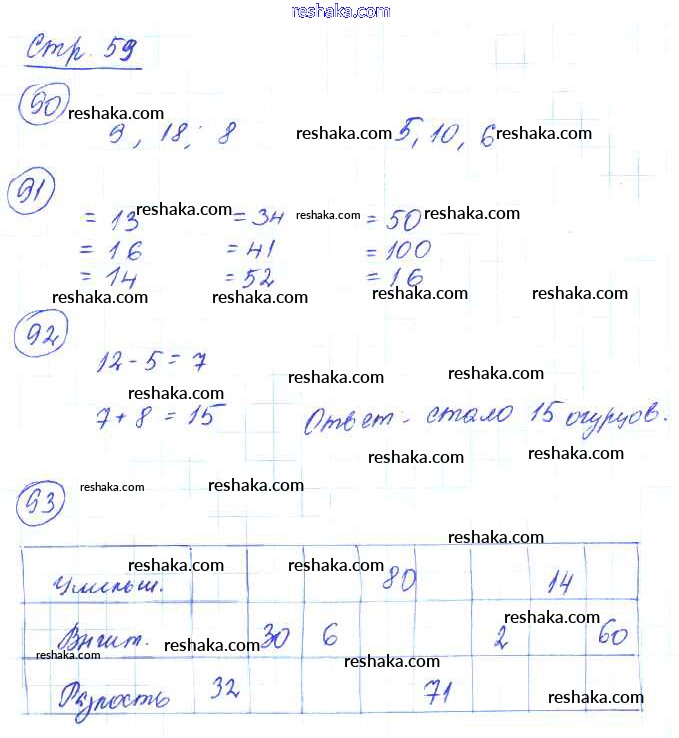 reshaka.com
Стр. 59
90 reshaka.com reshaka.com reshaka.com
9, 18; 8 5, 10, 6
91
reshaka.com reshaka.com reshaka.com
= 13 = 34 = 50
= 16 = 41 = 100
= 14 = 52 = 16
reshaka.com reshaka.com reshaka.com reshaka.com
92
reshaka.com
12 - 5 = 7 reshaka.com
reshaka.com reshaka.com
7 + 8 = 15 Ответ - стало 15 огурцов.
reshaka.com reshaka.com
93 reshaka.com reshaka.com
reshaka.com
reshaka.com reshaka.com
Уменьш. 80 14
reshaka.com reshaka.com
Вычит. 30 6 2 60
reshaka.com reshaka.com reshaka.com
reshaka.com
Разность 32 71
reshaka.com